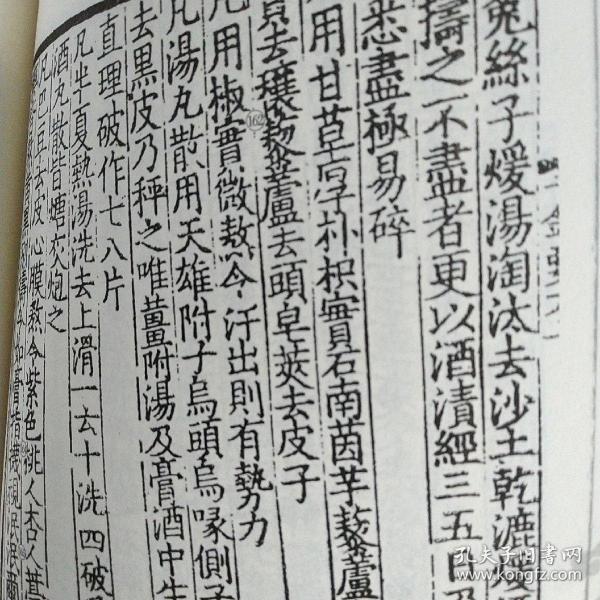 菟絲子煖湯淘汰去沙土乾漉煖
擣之不盡者更以酒漬經三五日乃
悉盡極易碎
用甘草厚朴枳實石南茵芋藜蘆
去穰藜蘆去頭皂莢去皮子
凡用椒實微熬令汗出則有勢力
凡湯丸散用天雄附子烏頭烏喙側子
去黑皮乃秤之唯薑附湯及膏酒中生
直理破作七八片
凡半夏熱湯洗去上滑一云十洗四破
酒丸散皆煻灰炮之
凡巴豆去皮心膜熬令紫色桃人杏人
162
孔夫子旧书网
www.kongfz.com